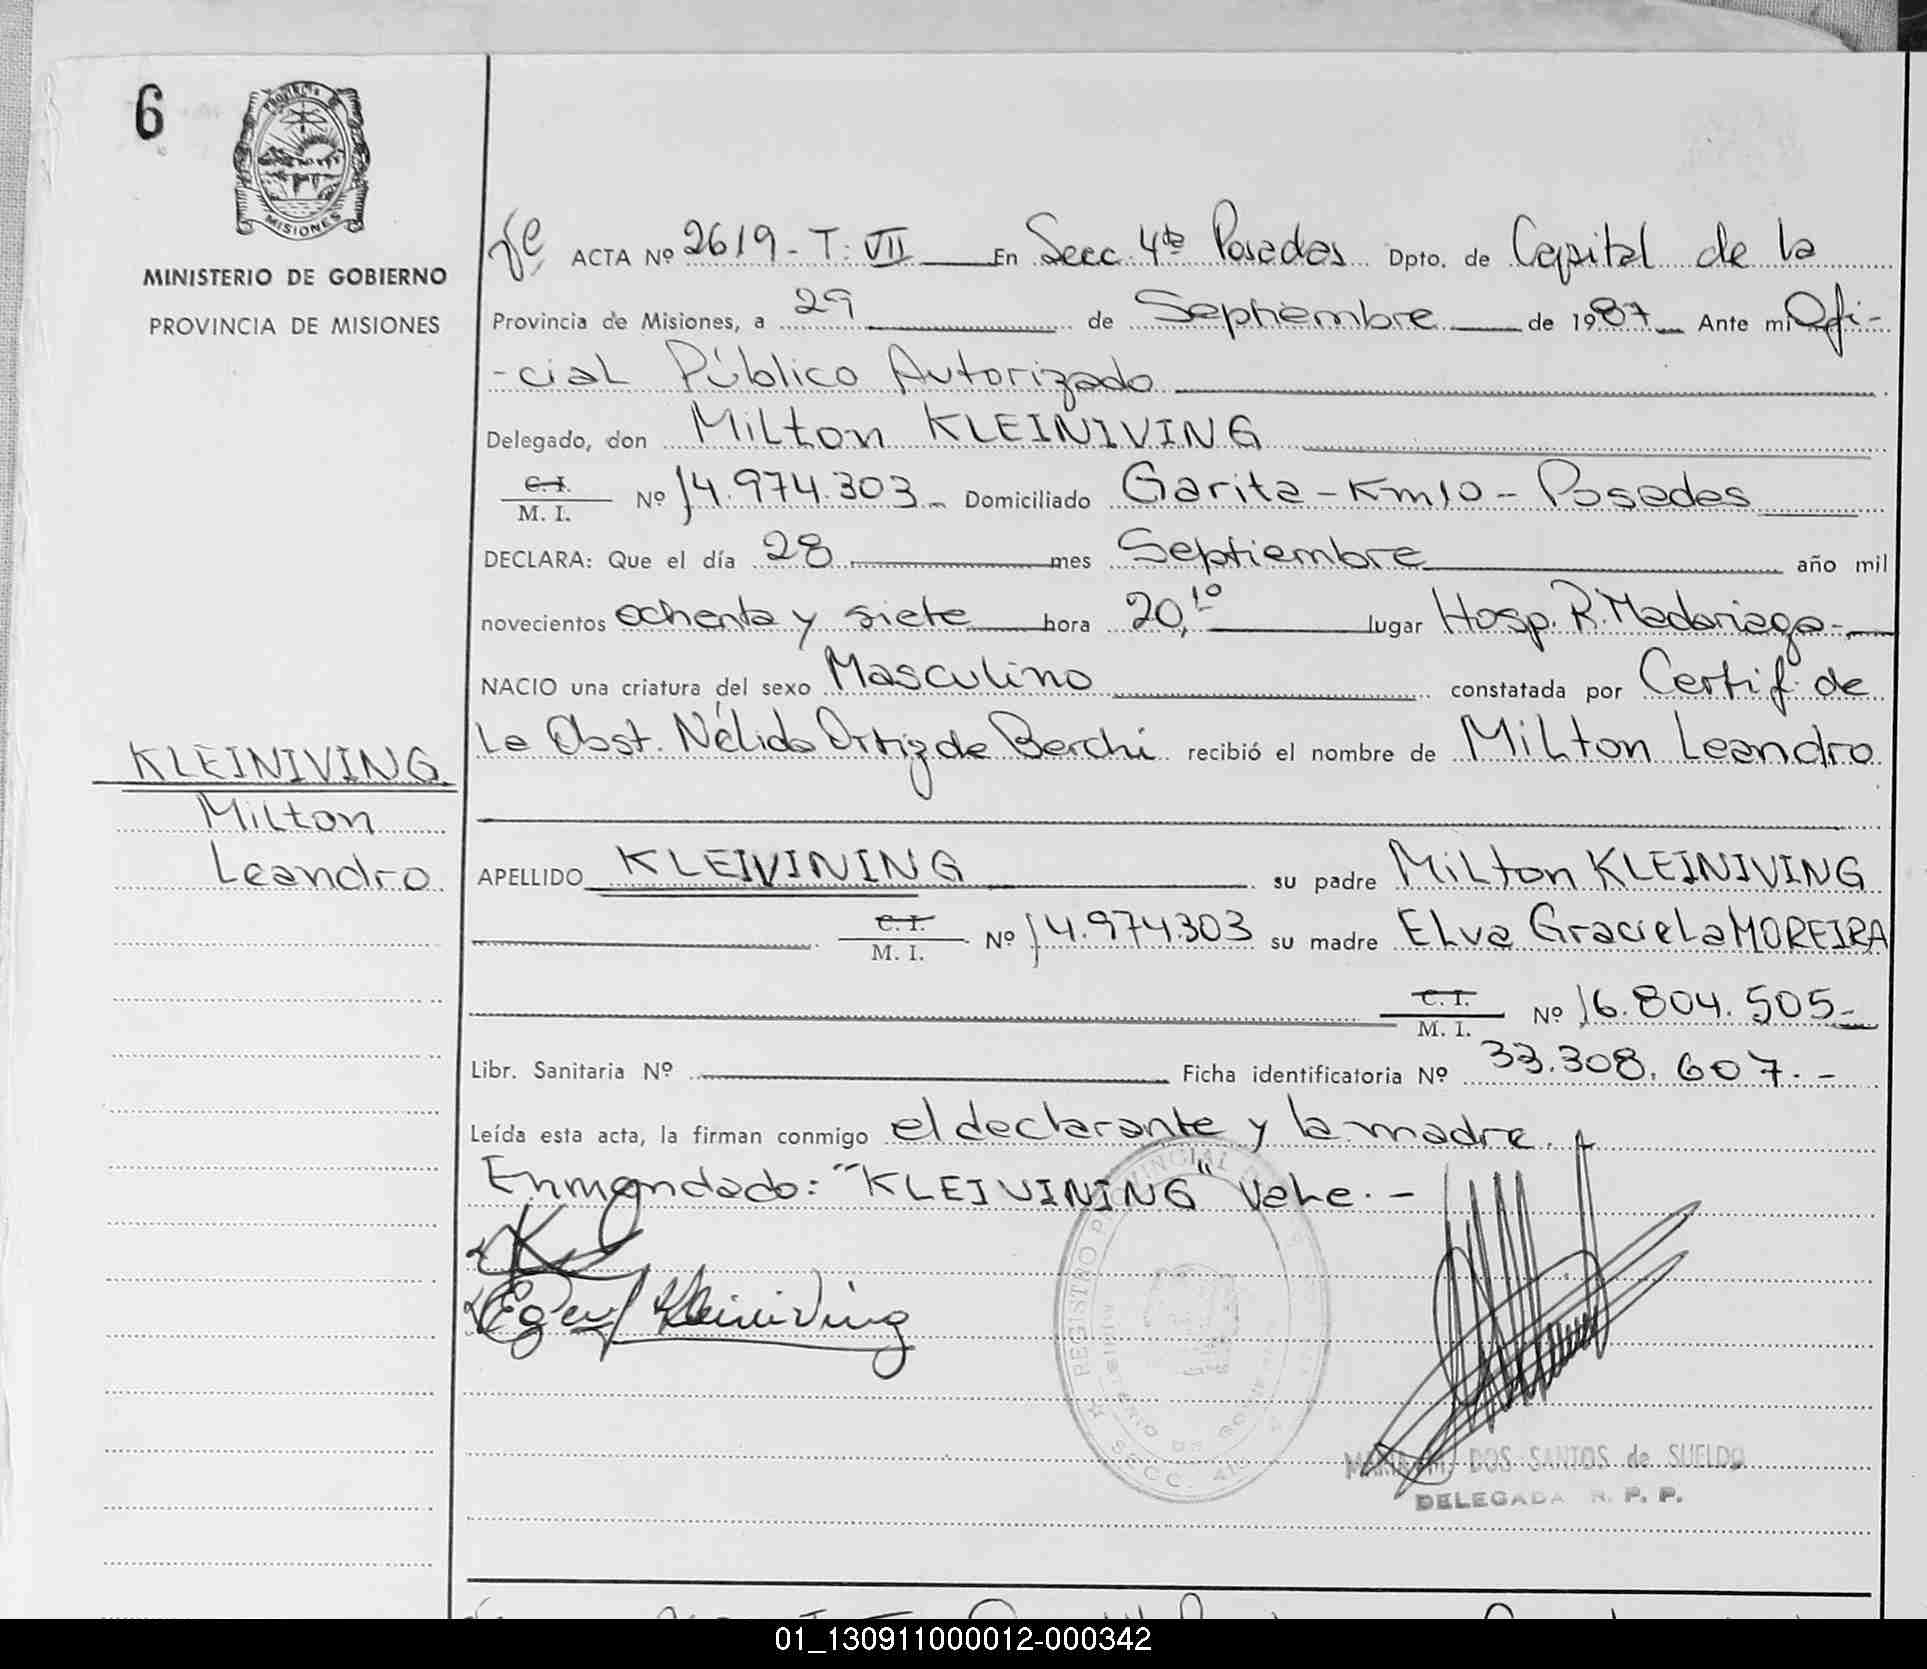 6
PROVINCIA DE
MISIONES
MINISTERIO DE GOBIERNO
PROVINCIA DE MISIONES
KLEINIVING
Milton
Leandro
ACTA Nº 2619 - T: VII En Secc. 4ta Posadas Dpto. de Capital de la
Provincia de Misiones, a 29 de Septiembre de 1987 Ante mi Ofi-
-cial Público Autorizado
Delegado, don Milton KLEINIVING
C. I.
M. I. Nº 14.974.303 - Domiciliado Garita - Km 10 - Posadas
DECLARA: Que el día 28 mes Septiembre año mil
novecientos ochenta y siete hora 20,10 lugar Hosp. R. Madariaga -
NACIO una criatura del sexo Masculino constatada por Certif. de
La Obst. Nélida Ortiz de Berchi recibió el nombre de Milton Leandro
APELLIDO KLEIVINING su padre Milton KLEINIVING
C. I.
M. I. Nº 14.974.303 su madre Elva Graciela MOREIRA
C. I.
M. I. Nº 16.804.505 -
Libr. Sanitaria Nº Ficha identificatoria Nº 33.308.607. -
Leída esta acta, la firman conmigo el declarante y la madre.
Enmendado: "KLEIVINING" Vale. -
Kleiniving
REGISTRO PROVINCIAL
SECC. 4ta
DOS SANTOS de SUELDO
DELEGADA R. P. P.
01_130911000012-000342